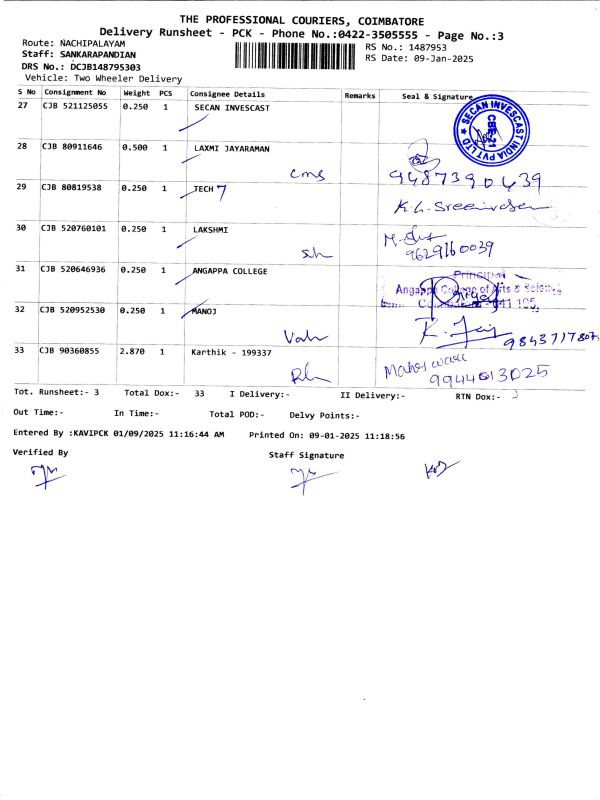 THE PROFESSIONAL COURIERS, COIMBATORE
Delivery Runsheet - PCK - Phone No.:0422-3505555 - Page No.:3
Route: NACHIPALAYAM
Staff: SANKARAPANDIAN
DRS No.: DCJB148795303
Vehicle: Two Wheeler Delivery
RS No.: 1487953
RS Date: 09-Jan-2025
S No Consignment No Weight PCS Consignee Details Remarks Seal & Signature
27 CJB 521125055 0.250 1 SECAN INVESCAST
SECAN INVESCAST INDIA PVT LTD
28 CJB 80911646 0.500 1 LAXMI JAYARAMAN
cms 9487390439
29 CJB 80819538 0.250 1 TECH 7
30 CJB 520760101 0.250 1 LAKSHMI
9629160039
31 CJB 520646936 0.250 1 ANGAPPA COLLEGE
Principal
Angappa College of Arts & Science
32 CJB 520952530 0.250 1 MANOJ
9843717807
33 CJB 90360855 2.870 1 Karthik - 199337
9944013025
Tot. Runsheet:- 3 Total Dox:- 33 I Delivery:- II Delivery:- RTN Dox:-
Out Time:- In Time:- Total POD:- Delvy Points:-
Entered By :KAVIPCK 01/09/2025 11:16:44 AM Printed On: 09-01-2025 11:18:56
Verified By Staff Signature